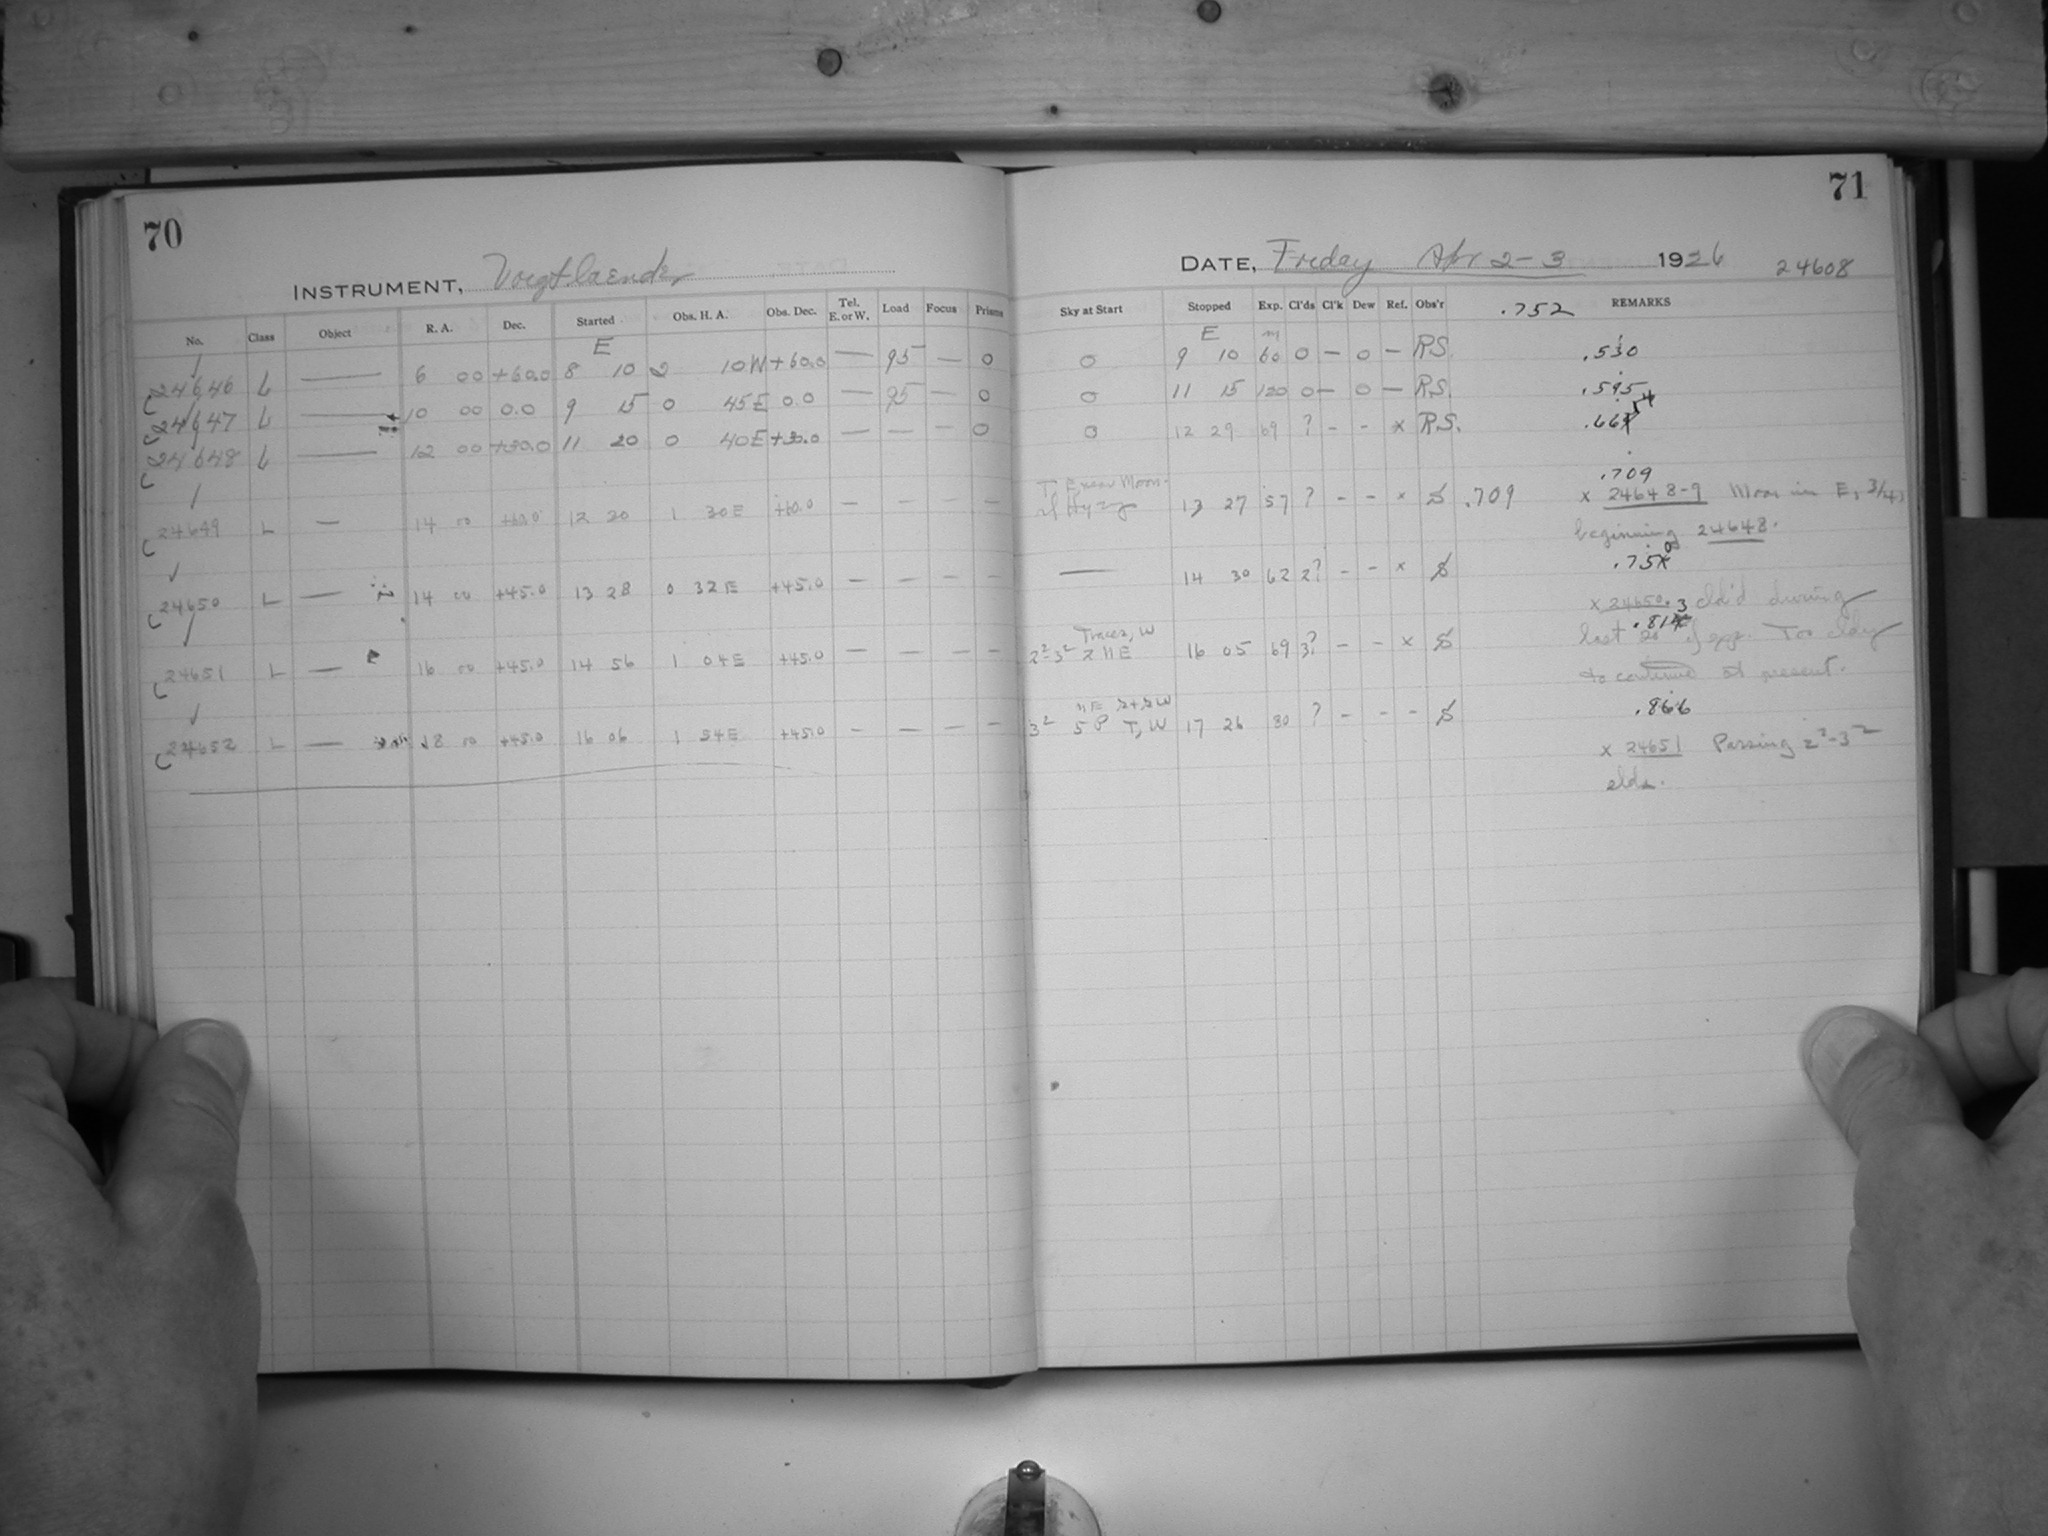 70
INSTRUMENT, Voigtlaender
No. Class Object R. A. Dec. Started Obs. H. A. Obs. Dec. Tel. E. or W. Load Focus Prisms
E
24646 L — 6 00 +60.0 8 10 2 10W +60.0 — 95 — 0
24647 L — 10 00 0.0 9 15 0 45E 0.0 — 95 — 0
24648 L — 12 00 +30.0 11 20 0 40E +30.0 — — — 0
24649 L — 14 00 +60.0 12 30 1 30E +60.0 — — — —
24650 L — 14 00 +45.0 13 28 0 32E +45.0 — — — —
24651 L — 16 00 +45.0 14 56 1 04E +45.0 — — — —
24652 L — 18 00 +45.0 16 06 1 54E +45.0 — — — —
71
DATE, Friday Apr 2-3 1926 24608
Sky at Start Stopped Exp. Cl'ds Cl'k Dew Ref. Obs'r .752 REMARKS
E m
0 9 10 60 0 — 0 — R.S. .530
0 11 15 120 0 — 0 — R.S. .595
0 12 29 69 ? - - x R.S. .66
.709
13 27 57 ? - - x S .709 x 24648-9 Moon in E, 3/4,
beginning 24648.
.75
— 14 30 62 2? - - x S
x 24650. cld'd during
.81
Traces, W
2²-3² 2 n E 16 05 69 3? - - x S last 20 of exp. Too cldy
to continue at present.
.866
3² 5 P T, W 17 26 80 ? - - - S
x 24651 Passing 2²-3²
clds.